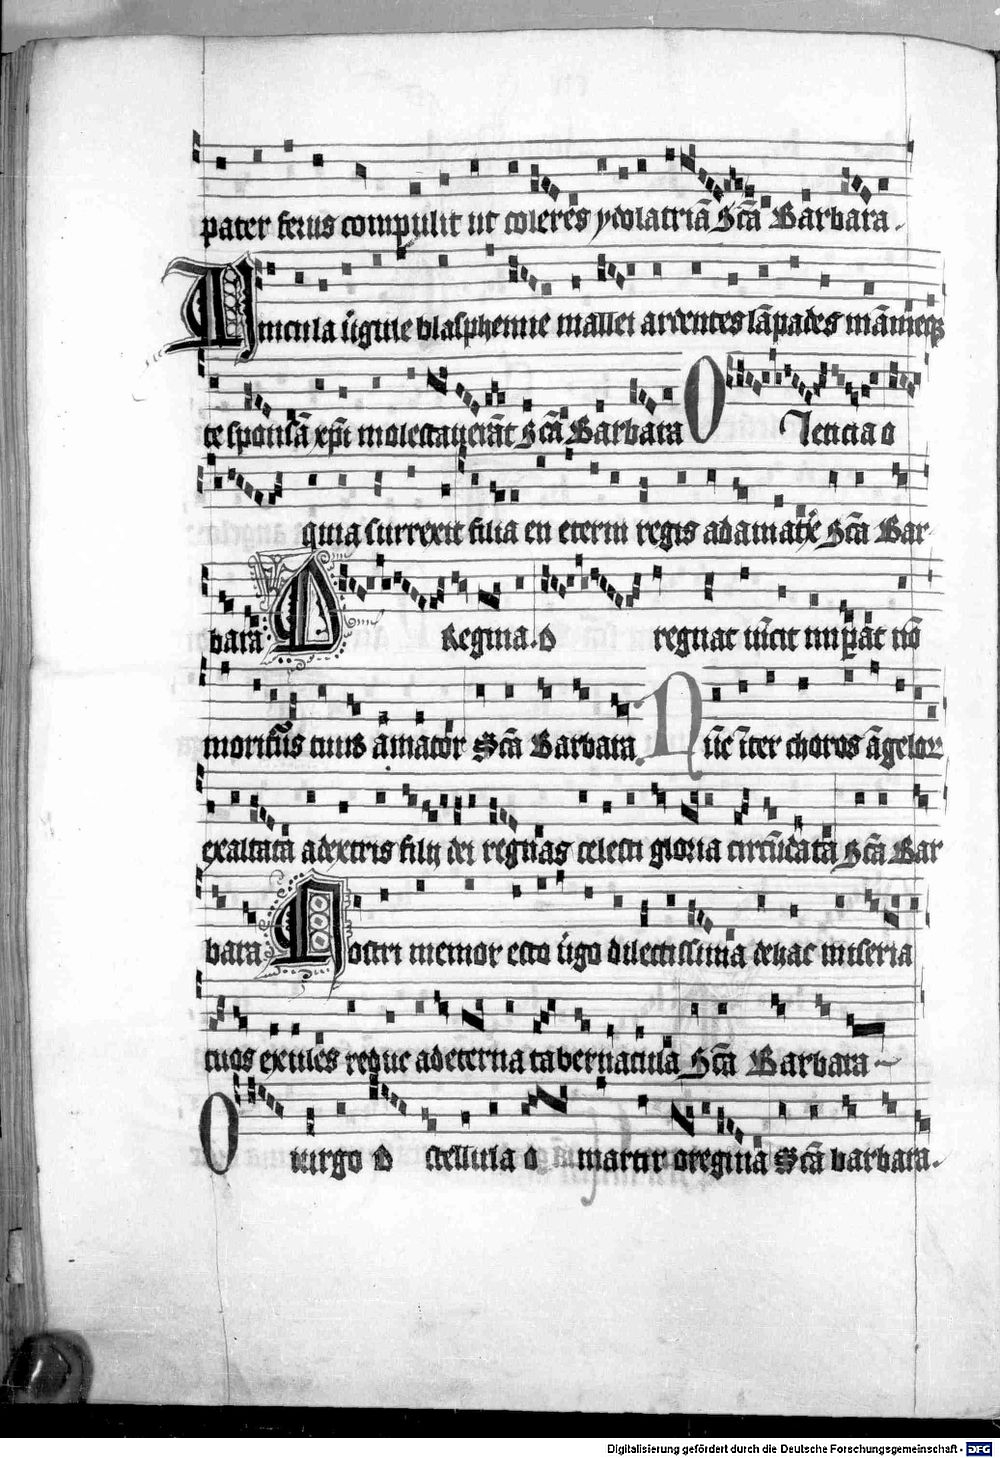 pater ferus compulit ut coleres ydolatriā Scā Barbara.
Vincula v̄gule blasphemie mallei ardentes lāpades māmeq3
te sponsā xp̄i molestaverāt Scā Barbara O lencia o
quia surrexit filia en eterni regis adamatrix Scā Bar-
bara Regina.O regnat vīcit imp̄at nō
morit' tuus amator Scā Barbara. Nūc īter choros āgelor
exaltata adextris filij dei regnas celesti gloria circūdata Scā Bar
bara Nostri memor esto v̄go dilectissima dehac miseria
tuos exules reduc adeterna tabernacula Scā Barbara
O virgo O stellula O martir oregina Scā barbara.
Digitalisierung gefördert durch die Deutsche Forschungsgemeinschaft - DFG